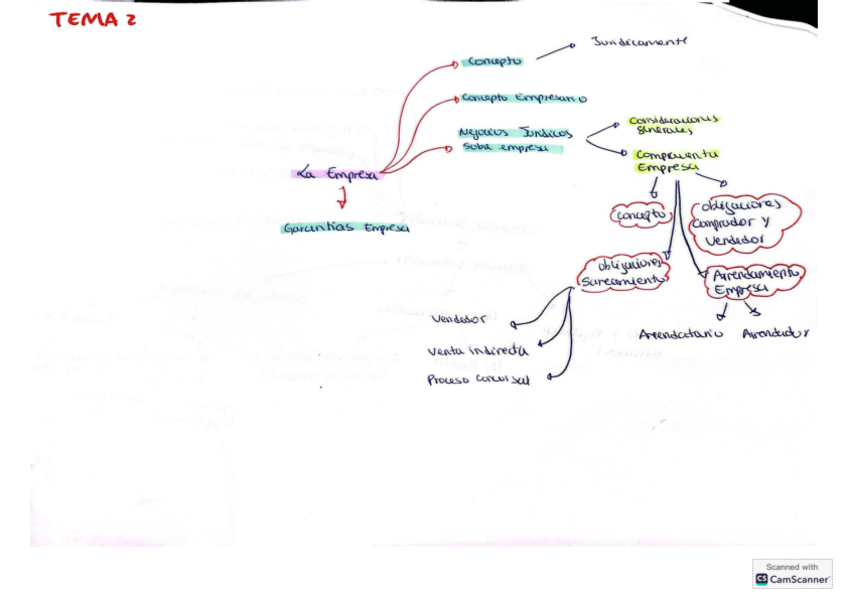 TEMA 2
Concepto
Juridicamente
Concepto Empresario
Negocios Juridicos
sobre empresa
Consideraciones
generales
Compraventa
Empresa
La Empresa
Garantias Empresa
Concepto
obligaciones
Comprador y
Vendedor
obligaciones
Saneamiento
Arrendamiento
Empresa
Vendedor
Venta indirecta
Proceso concursal
Arrendatario
Arrendador
Scanned with
CS CamScanner